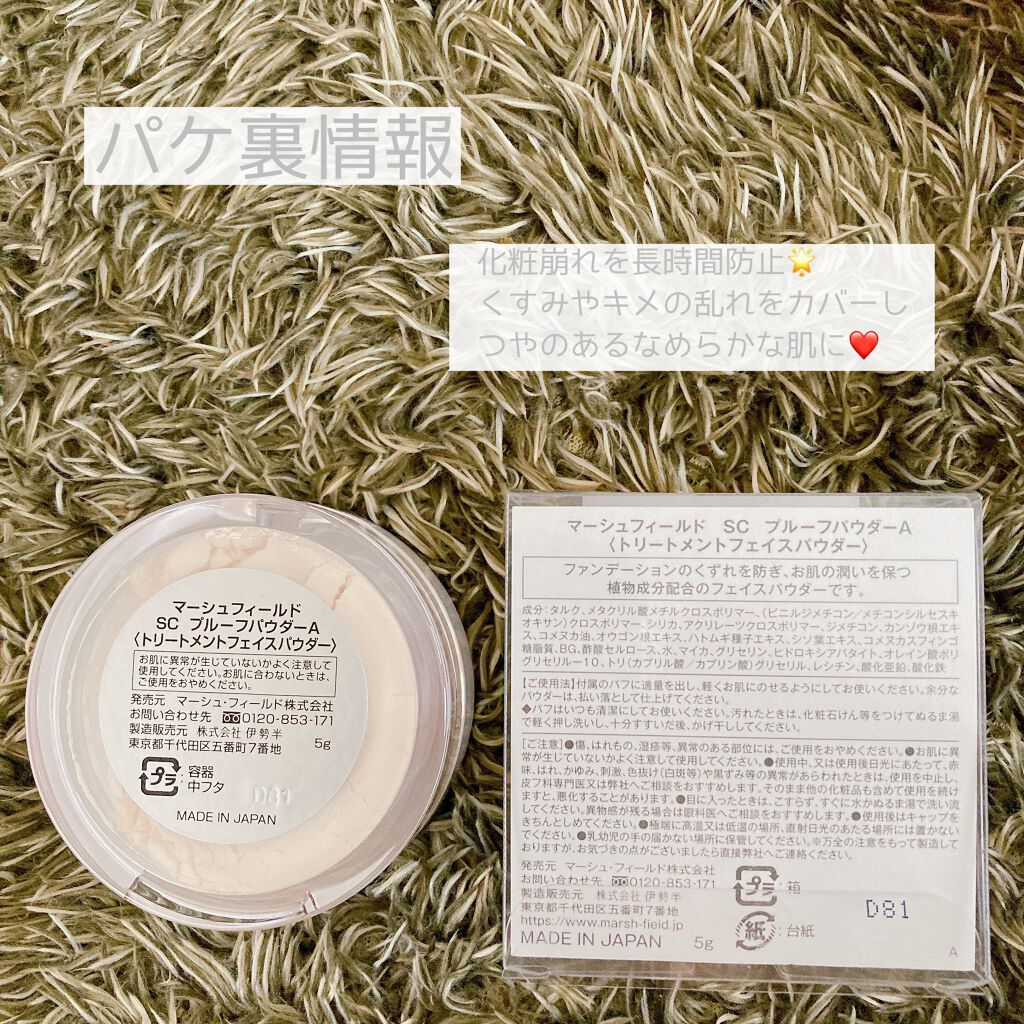 パケ裏情報
化粧崩れを長時間防止🌟
くすみやキメの乱れをカバーし
つやのあるなめらかな肌に❤️
マーシュフィールド
SC プルーフパウダーA
〈トリートメントフェイスパウダー〉
お肌に異常が生じていないかよく注意して
使用してください。お肌に合わないときは、
ご使用をおやめください。
発売元 マーシュ・フィールド株式会社
お問い合わせ先 0120-853-171
製造販売元 株式会社 伊勢半
東京都千代田区五番町7番地 5g
プラ :容器
中フタ
D81
MADE IN JAPAN
マーシュフィールド SC プルーフパウダーA
〈トリートメントフェイスパウダー〉
ファンデーションのくずれを防ぎ、お肌の潤いを保つ
植物成分配合のフェイスパウダーです。
成分:タルク、メタクリル酸メチルクロスポリマー、(ビニルジメチコン/メチコンシルセスキ
オキサン)クロスポリマー、シリカ、アクリレーツクロスポリマー、ジメチコン、カンゾウ根エキ
ス、コメヌカ油、オウゴン根エキス、ハトムギ種子エキス、シソ葉エキス、コメヌカスフィンゴ
糖脂質、BG、酢酸セルロース、水、マイカ、グリセリン、ヒドロキシアパタイト、オレイン酸ポリ
グリセリル-10、トリ(カプリル酸/カプリン酸)グリセリル、レシチン、酸化亜鉛、酸化鉄
【ご使用法】付属のパフに適量を出し、軽くお肌にのせるようにしてお使いください。余分な
パウダーは、払い落として仕上げてください。
◆パフはいつも清潔にしてお使いください。汚れたときは、化粧石けん等をつけてぬるま湯
で軽く押し洗いし、十分すすいだ後、かげ干ししてください。
【ご注意】●傷、はれもの、湿疹等、異常のある部位には、ご使用をおやめください。●お肌に異
常が生じていないかよく注意して使用してください。●使用中、又は使用後日光にあたって、赤
味、はれ、かゆみ、刺激、色抜け(白斑等)や黒ずみ等の異常があらわれたときは、使用を中止し、
皮フ科専門医又は弊社へご相談をおすすめします。そのまま他の化粧品も含めて使用を続け
ますと、悪化することがあります。●目に入ったときは、こすらず、すぐに水かぬるま湯で洗い流
してください。異物感が残る場合は眼科医へご相談をおすすめします。●使用後はキャップを
きちんとしめてください。●極端に高温又は低温の場所、直射日光のあたる場所には置かない
でください。●乳幼児の手の届かない場所に保管してください。※万全の注意をもって製造して
おりますが、お気づきの点がございましたら直接弊社へご連絡ください。
発売元 マーシュ・フィールド株式会社
お問い合わせ先 0120-853-171
製造販売元 株式会社 伊勢半
東京都千代田区五番町7番地
https://www.marsh-field.jp
MADE IN JAPAN 5g
プラ :箱
紙 :台紙
D81
A